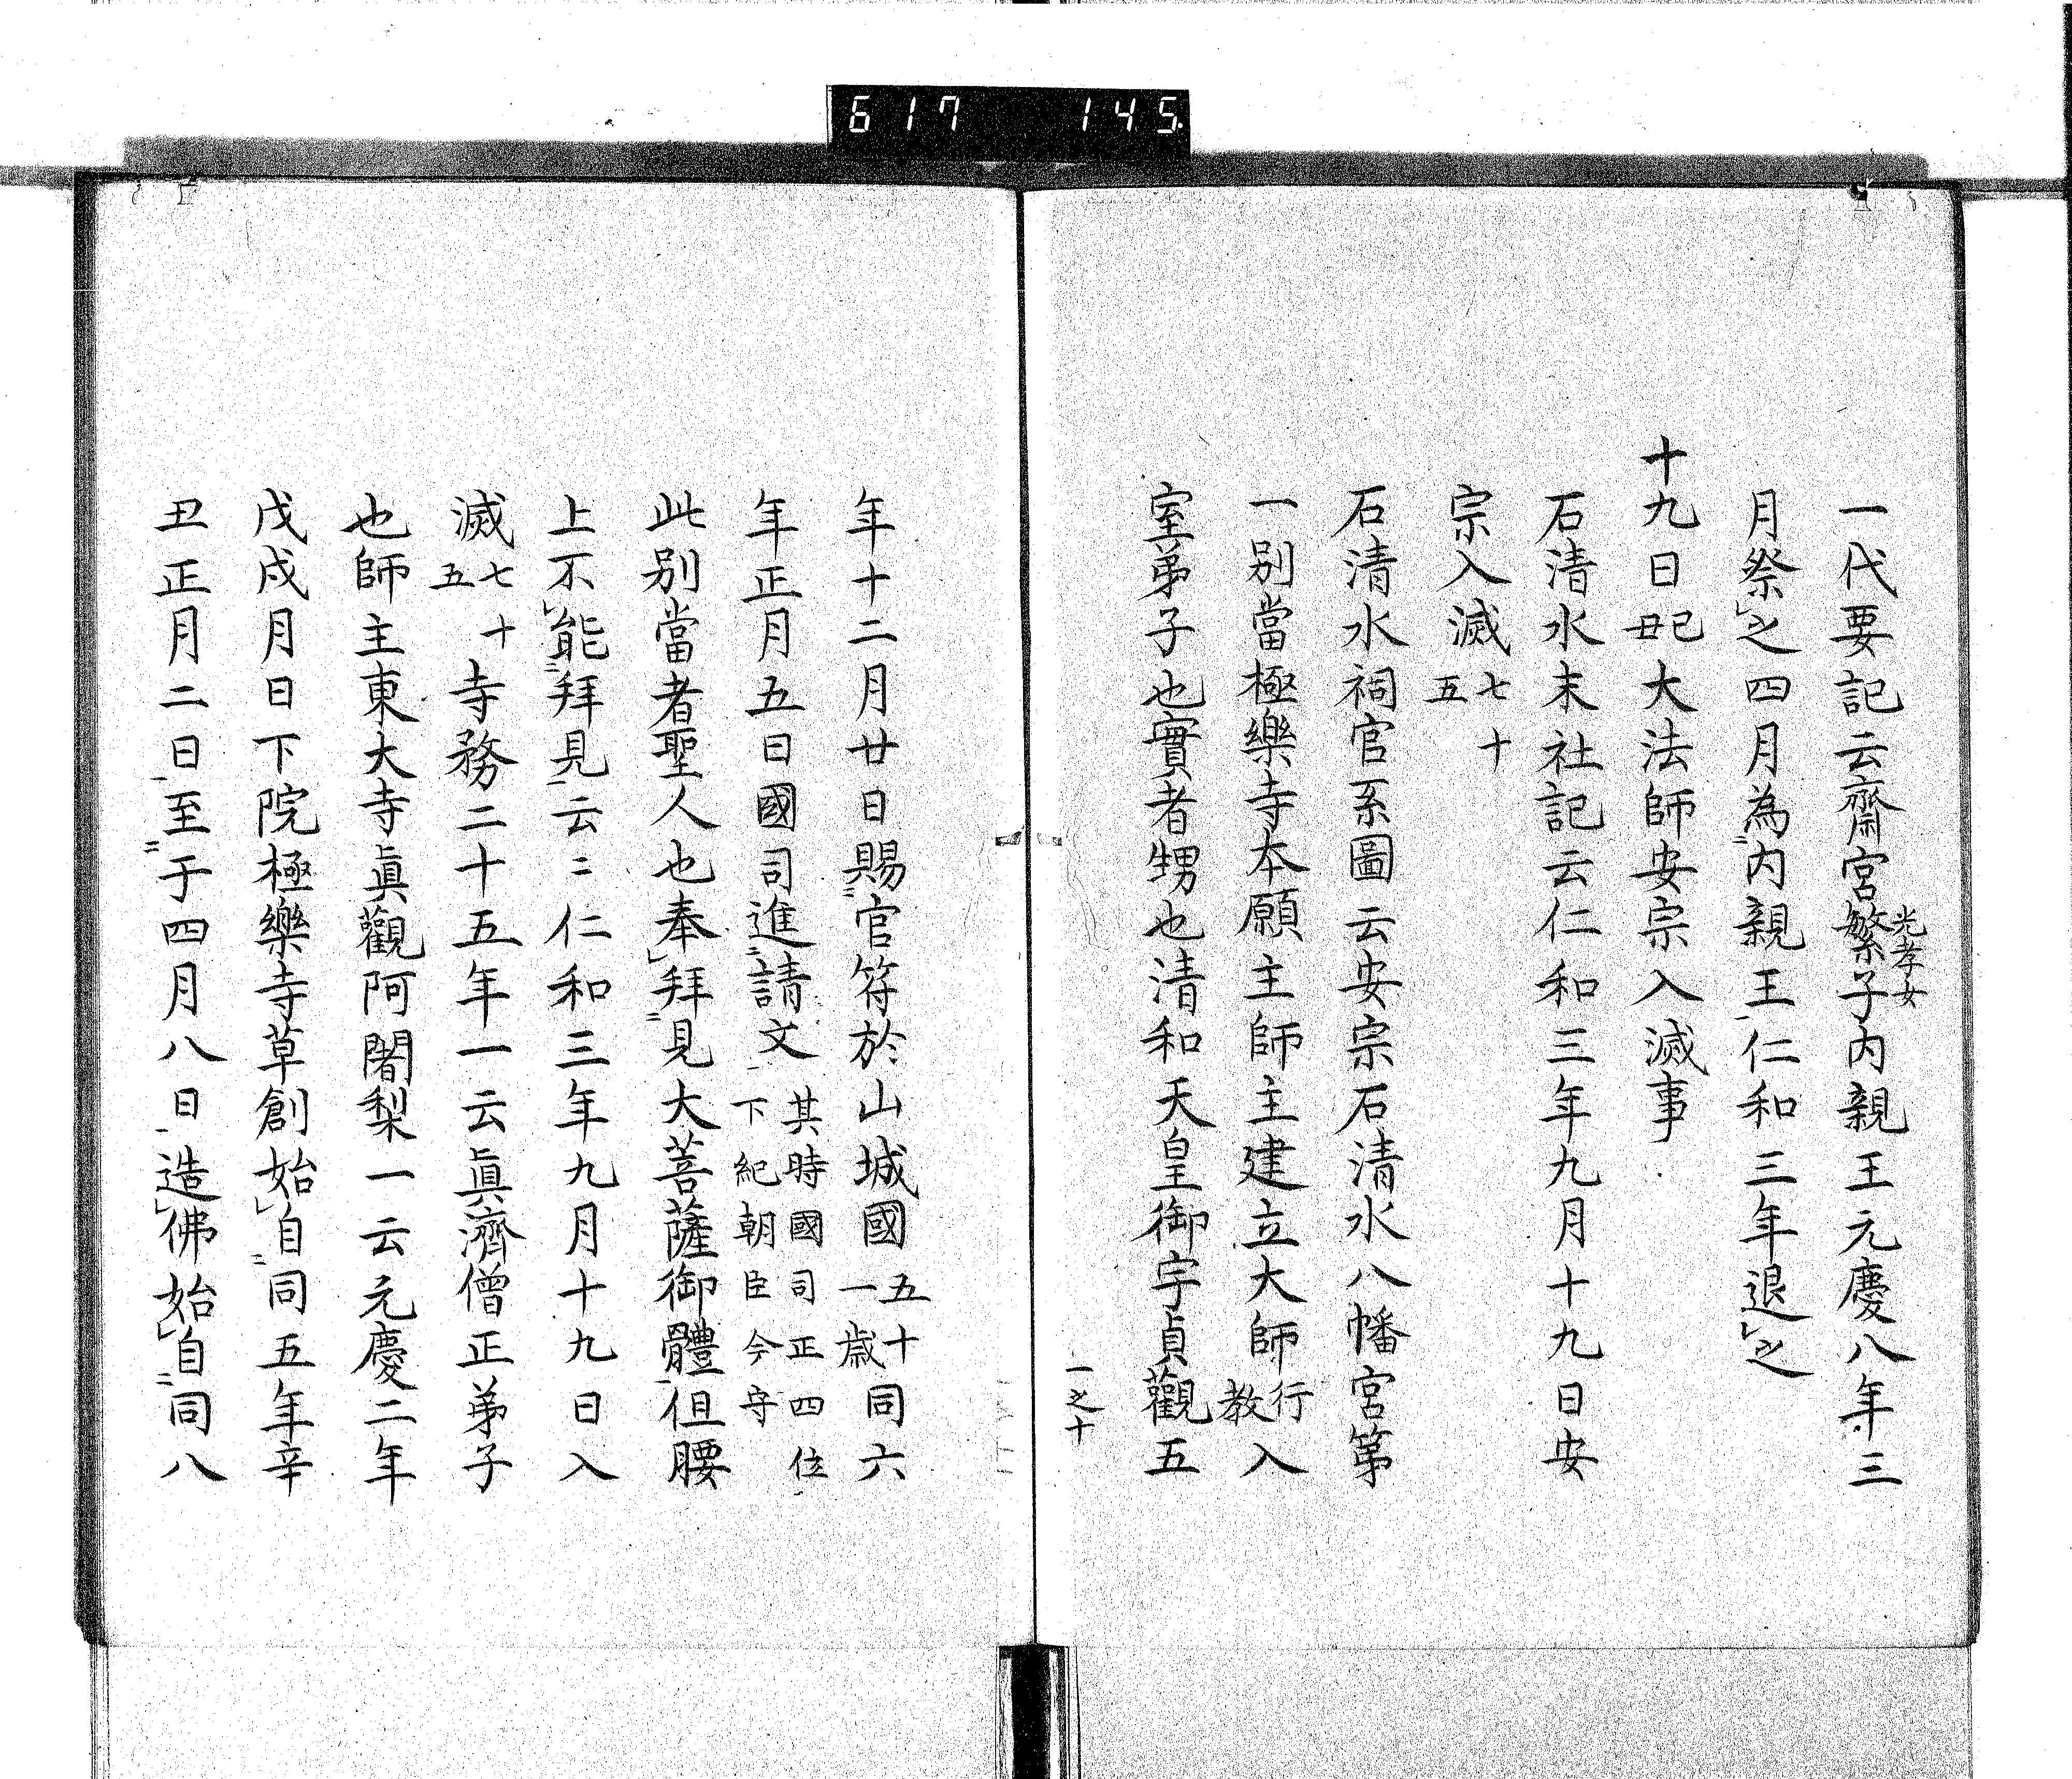 617 145
一代要記云齋宮繁子内親王元慶八年三
光孝女
月祭之四月為内親王仁和三年退之
十九日己丑大法師安宗入滅事
石清水末社記云仁和三年九月十九日安
宗入滅七十五
石清水祠官系圖云安宗石清水八幡宮第
一別當極樂寺本願主師主建立大師行教入
室弟子也實者甥也清和天皇御宇貞觀五
一之十
年十二月廿日賜官符於山城國五十一歳同六
年正月五日國司進請文其時國司正四位下紀朝臣今守
此別當者聖人也奉拜見大菩薩御體但腰
上不能拜見云〻仁和三年九月十九日入
滅七十五寺務二十五年一云眞濟僧正弟子
也師主東大寺眞觀阿闍梨一云元慶二年
戊戌月日下院極樂寺草創始自同五年辛
丑正月二日至于四月八日造佛始自同八